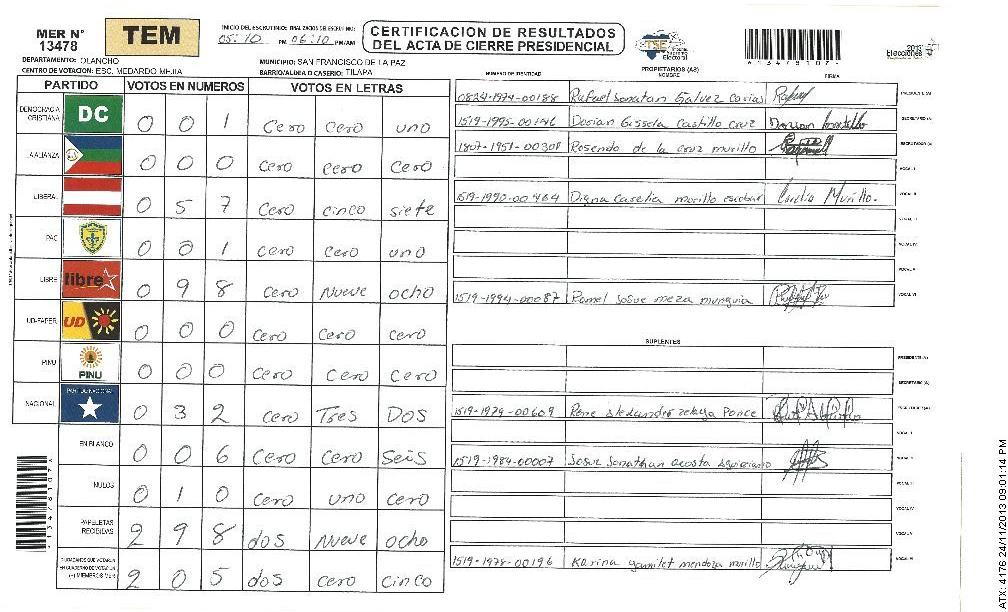 MER N° 13478
TEM
INICIO DEL ESCRUTINIO: FINALIZACION DEL ESCRUTINIO:
05:10 PM 06:10 PM/AM
CERTIFICACION DE RESULTADOS
DEL ACTA DE CIERRE PRESIDENCIAL
TSE Tribunal Supremo Electoral
2013 Elecciones
DEPARTAMENTO: OLANCHO
MUNICIPIO: SAN FRANCISCO DE LA PAZ
CENTRO DE VOTACION: ESC. MEDARDO MEJIA
BARRIO/ALDEA O CASERIO: TILAPA
PARTIDO VOTOS EN NUMEROS VOTOS EN LETRAS
DEMOCRACIA CRISTIANA DC 0 0 1 Cero Cero uno
ALIANZA 0 0 0 Cero Cero Cero
LIBERAL 0 5 7 Cero cinco siete
PAC 0 0 1 Cero Cero uno
LIBRE libre 0 9 8 Cero Nueve ocho
UD-FAPER UD 0 0 0 Cero Cero Cero
PINU PINU 0 0 0 Cero Cero Cero
NACIONAL PARTIDO NACIONAL 0 3 2 Cero Tres Dos
EN BLANCO 0 0 6 Cero Cero Seis
NULOS 0 1 0 Cero uno Cero
PAPELETAS RECIBIDAS 2 9 8 dos Nueve ocho
CIUDADANOS QUE VOTARON EN CUADERNO DE VOTACION (+) MIEMBROS MER 2 0 5 dos Cero cinco
NUMERO DE IDENTIDAD PROPIETARIOS (AS) NOMBRE FIRMA
0824-1974-00188 Rafael Jonatan Galvez Carias PRESIDENTE (A)
1519-1995-00146 Dorian Gissela Castillo Cruz SECRETARIO (A)
1807-1951-00308 Rosendo de la cruz murillo ESCRUTADOR (A)
VOCAL I
1519-1990-00464 Digna Carelia murillo escobar Carelia Murillo. VOCAL II
VOCAL III
VOCAL IV
VOCAL V
1519-1994-00087 Romel Josue meza munguia VOCAL VI
SUPLENTES
PRESIDENTE (A)
SECRETARIO (A)
1519-1979-00609 Rene Alexander zelaya Ponce ESCRUTADOR (A)
VOCAL I
1519-1984-00007 Josue Jonathan acosta VOCAL II
VOCAL III
VOCAL IV
VOCAL V
1519-1978-00196 Karina yamilet mendoza murillo VOCAL VI
ATX: 4176 24/11/2013 09:01:14 PM